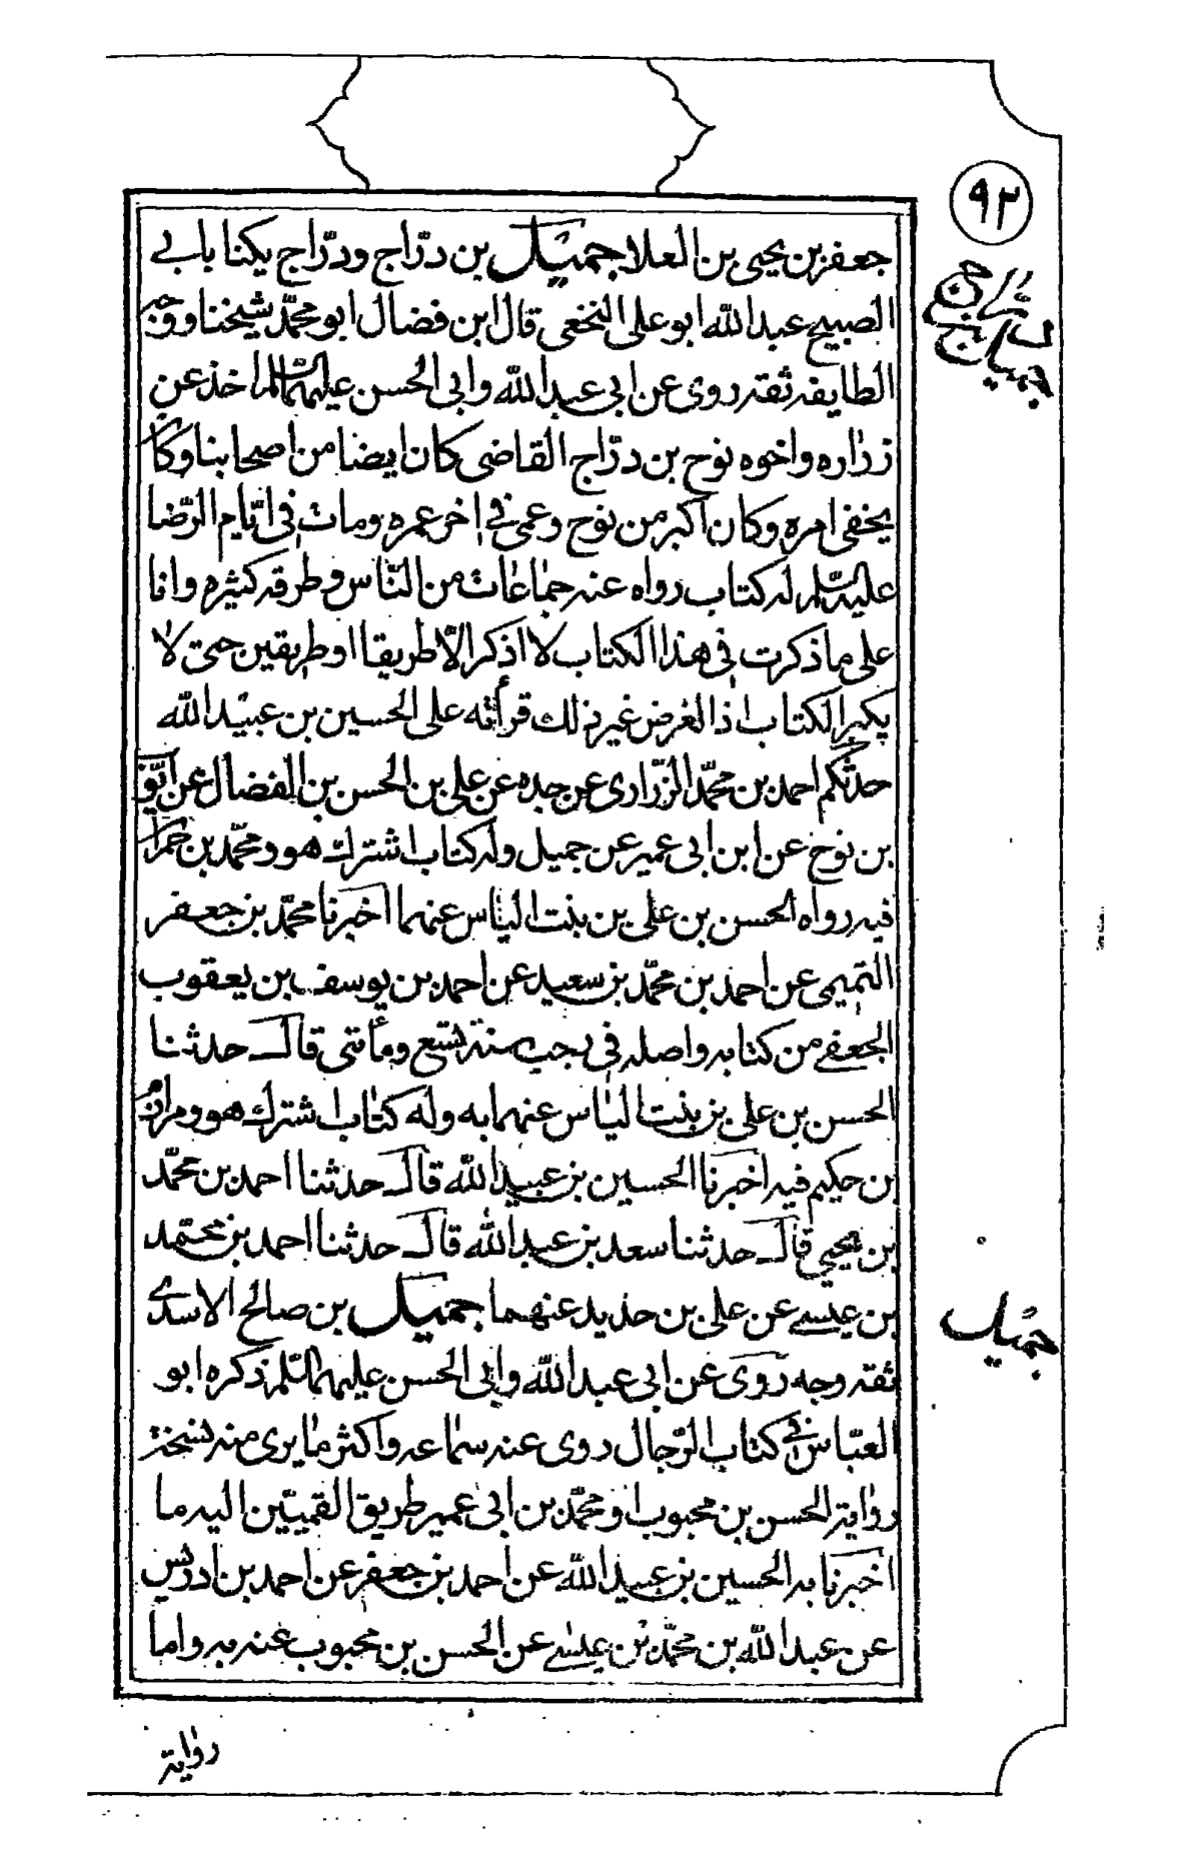 ٩٢
جميل بن درّاج
جعفر بن يحيى بن العلا جميل بن درّاج ودرّاج يكنا بابي
الصبيح عبد الله ابو على النخعى قال ابن فضال ابو محمّد شيخنا ووجه
الطايفه ثقه روى عن ابى عبد الله وابى الحسن عليهما السّلم اخذ عن
زراره واخوه نوح بن درّاج القاضى كان ايضا من اصحابنا وكان
يخفى امره وكان اكبر من نوح وعمى في اخر عمره ومات فى ايّام الرّضا
عليه السّلم له كتاب رواه عنه جماعات من النّاس وطرقه كثيره وانا
على ما ذكرت فى هذا الكتاب لا اذكر الّا طريقا او طريقين حتى لا
يكبر الكتاب اذ الغرض غير ذلك قرأته على الحسين بن عبيد الله
حدثكم احمد بن محمّد الزّرارى عن جده عن على بن الحسن بن الفضال عن ايّوب
بن نوح عن ابن ابى عمير عن جميل وله كتاب اشترك هو ومحمّد بن حمران
فيه رواه الحسن بن على بن بنت الياس عنهما اخبرنا محمّد بن جعفر
التميمى عن احمد بن محمّد بن سعيد عن احمد بن يوسف بن يعقوب
الجعفي من كتابه واصله فى رجب سنة تسع ومأتى قال حدثنا
الحسن بن على بن بنت الياس عنهما به وله كتاب اشترك هو ومرازم
بن حكيم فيه اخبرنا الحسين بن عبيد الله قال حدثنا احمد بن محمّد
بن يحيى قال حدثنا سعد بن عبد الله قال حدثنا احمد بن محمّد
بن عيسے عن على بن حديد عنهما جميل بن صالح الاسدے
ثقه وجه روى عن ابى عبد الله وابى الحسن عليهما السّلم ذكره ابو
العبّاس في كتاب الرّجال روى عنه سماعه واكثر ما يرى منه نسخة
رواية الحسن بن محبوب او محمّد بن ابى عمير طريق القميّين اليه ما
اخبرنا به الحسين بن عبيد الله عن احمد بن جعفر عن احمد بن ادريس
عن عبد الله بن محمّد بن عيسے عن الحسن بن محبوب عنه به واما
جميل
رواية